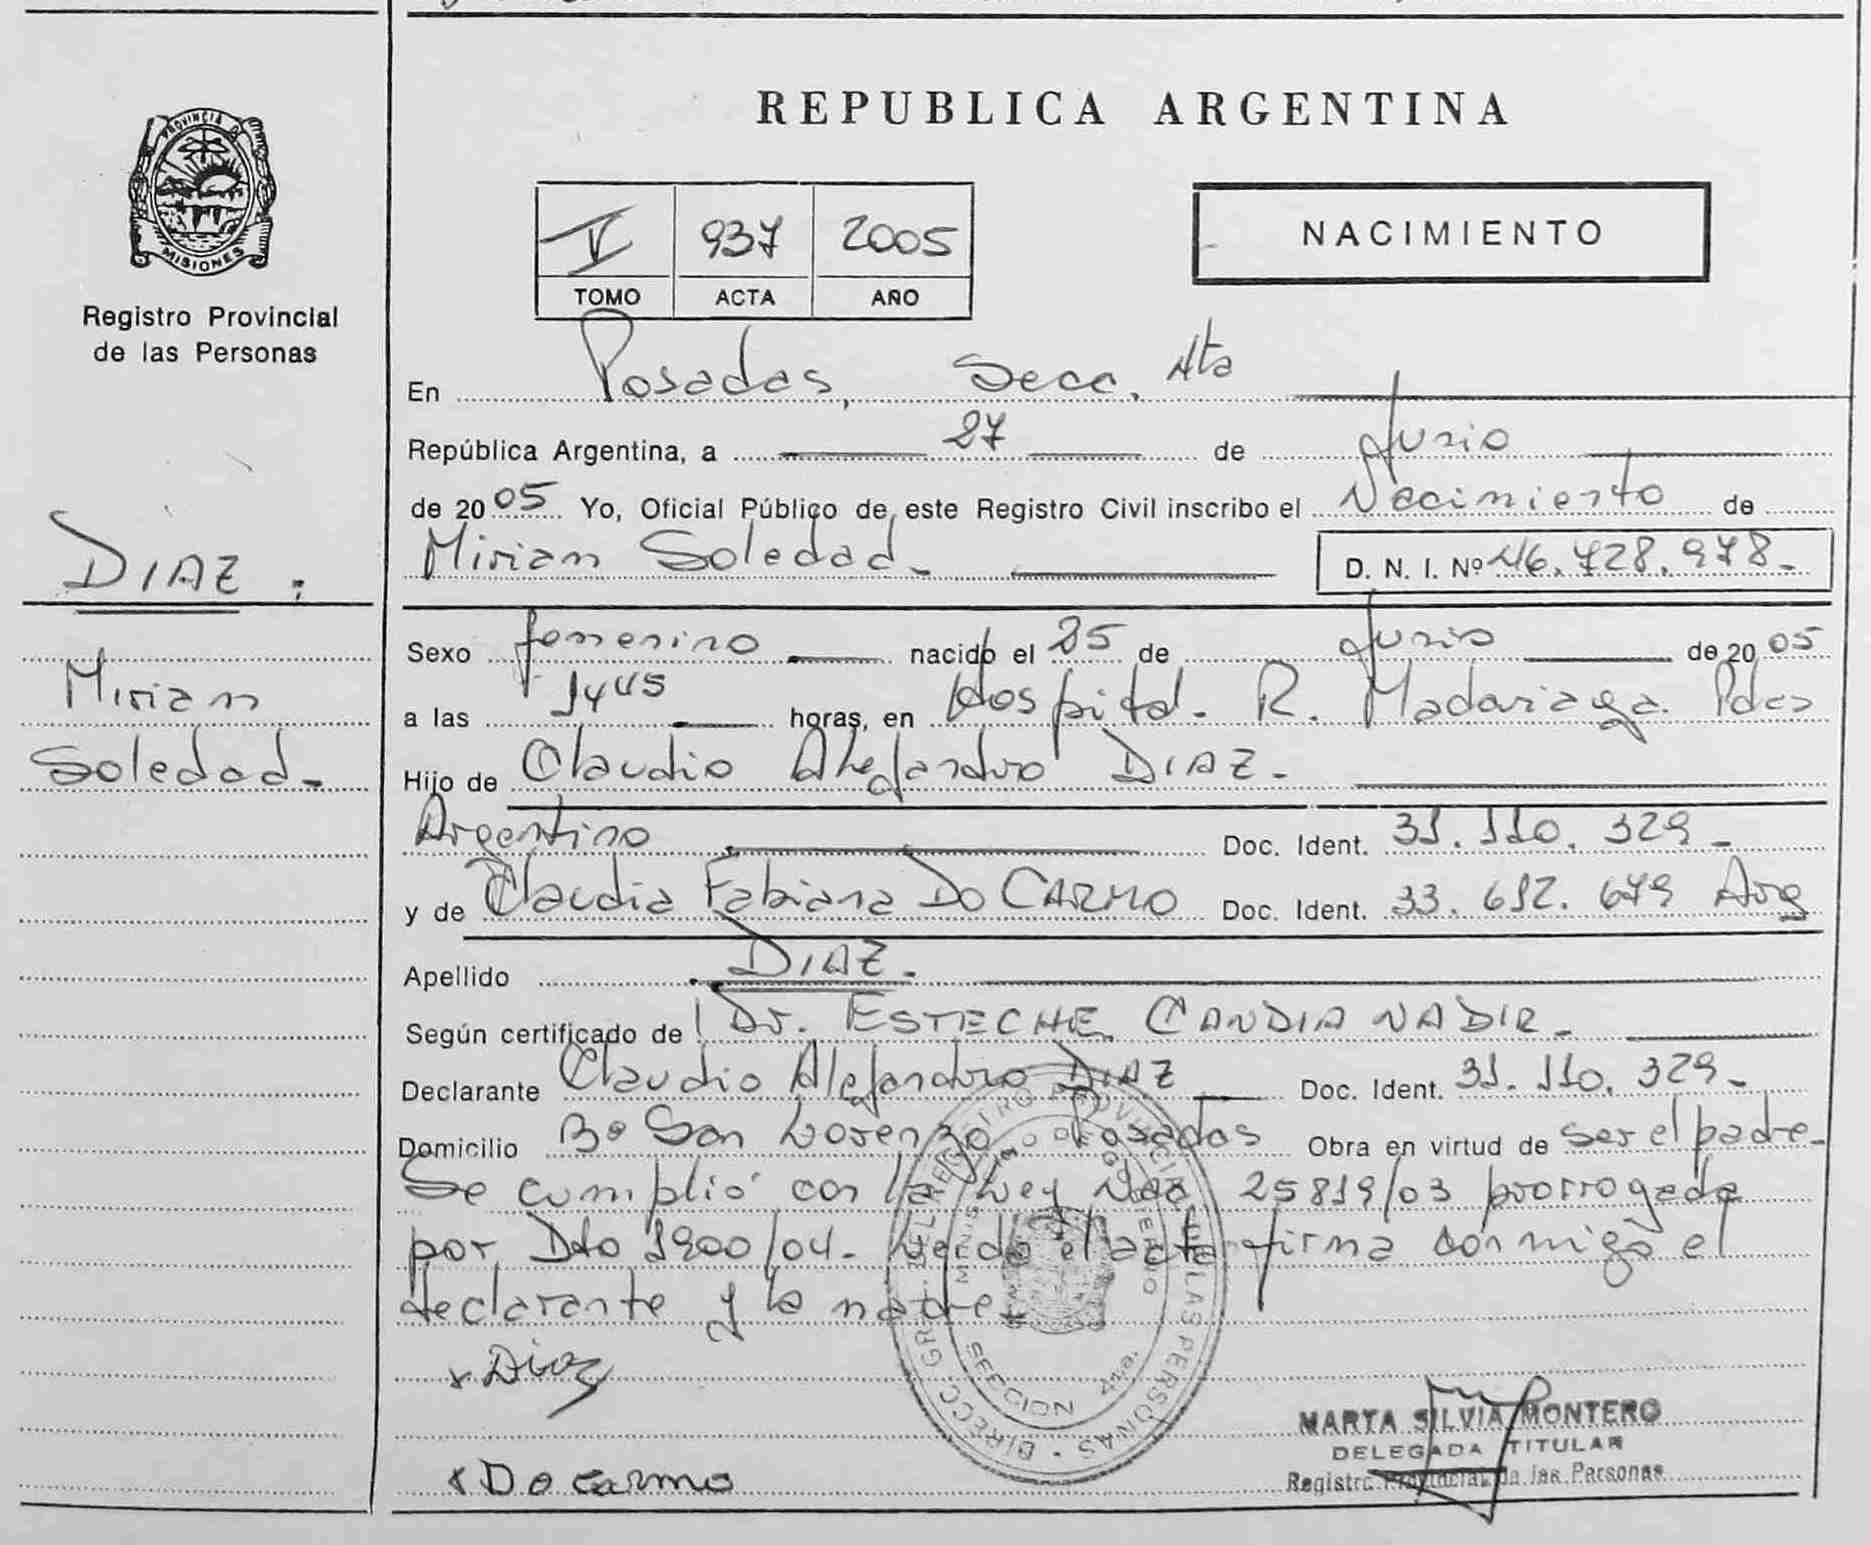 PROVINCIA D
MISIONES
Registro Provincial
de las Personas
DIAZ.
Mirian
Soledad-
REPUBLICA ARGENTINA
V 937 2005
TOMO ACTA AÑO
NACIMIENTO
En Posadas, Secc. 4ta
República Argentina, a 27 de Junio
de 2005 Yo, Oficial Público de este Registro Civil inscribo el Nacimiento de
Mirian Soledad- D. N. I. Nº 46.728.978-
Sexo femenino nacido el 25 de Junio de 2005
a las 1445 horas, en Hospital. R. Madariaga. Pdas
Hijo de Claudio Alejandro DIAZ-
Argentino Doc. Ident. 31.110.329-
y de Claudia Fabiana DO CARMO Doc. Ident. 33.612.679 Arg
Apellido DIAZ-
Según certificado de Dr. ESTECHE CANDIA NADIR-
Declarante Claudio Alejandro DIAZ Doc. Ident. 31.110.329-
Domicilio Bº San Lorenzo - Posadas Obra en virtud de ser el padre-
Se cumplió con la Ley Nac 25819/03 prorrogada
por Dto 1900/04- Leída el acta firma conmigo el
declarante y la madre
x Diaz
x Do carmo
DIRECC. GRAL. DEL REGISTRO PROVINCIAL DE LAS PERSONAS
MINISTERIO DE GOBIERNO
SECCION 4ta.
MARTA SILVIA MONTERO
DELEGADA TITULAR
Registro Provincial de las Personas